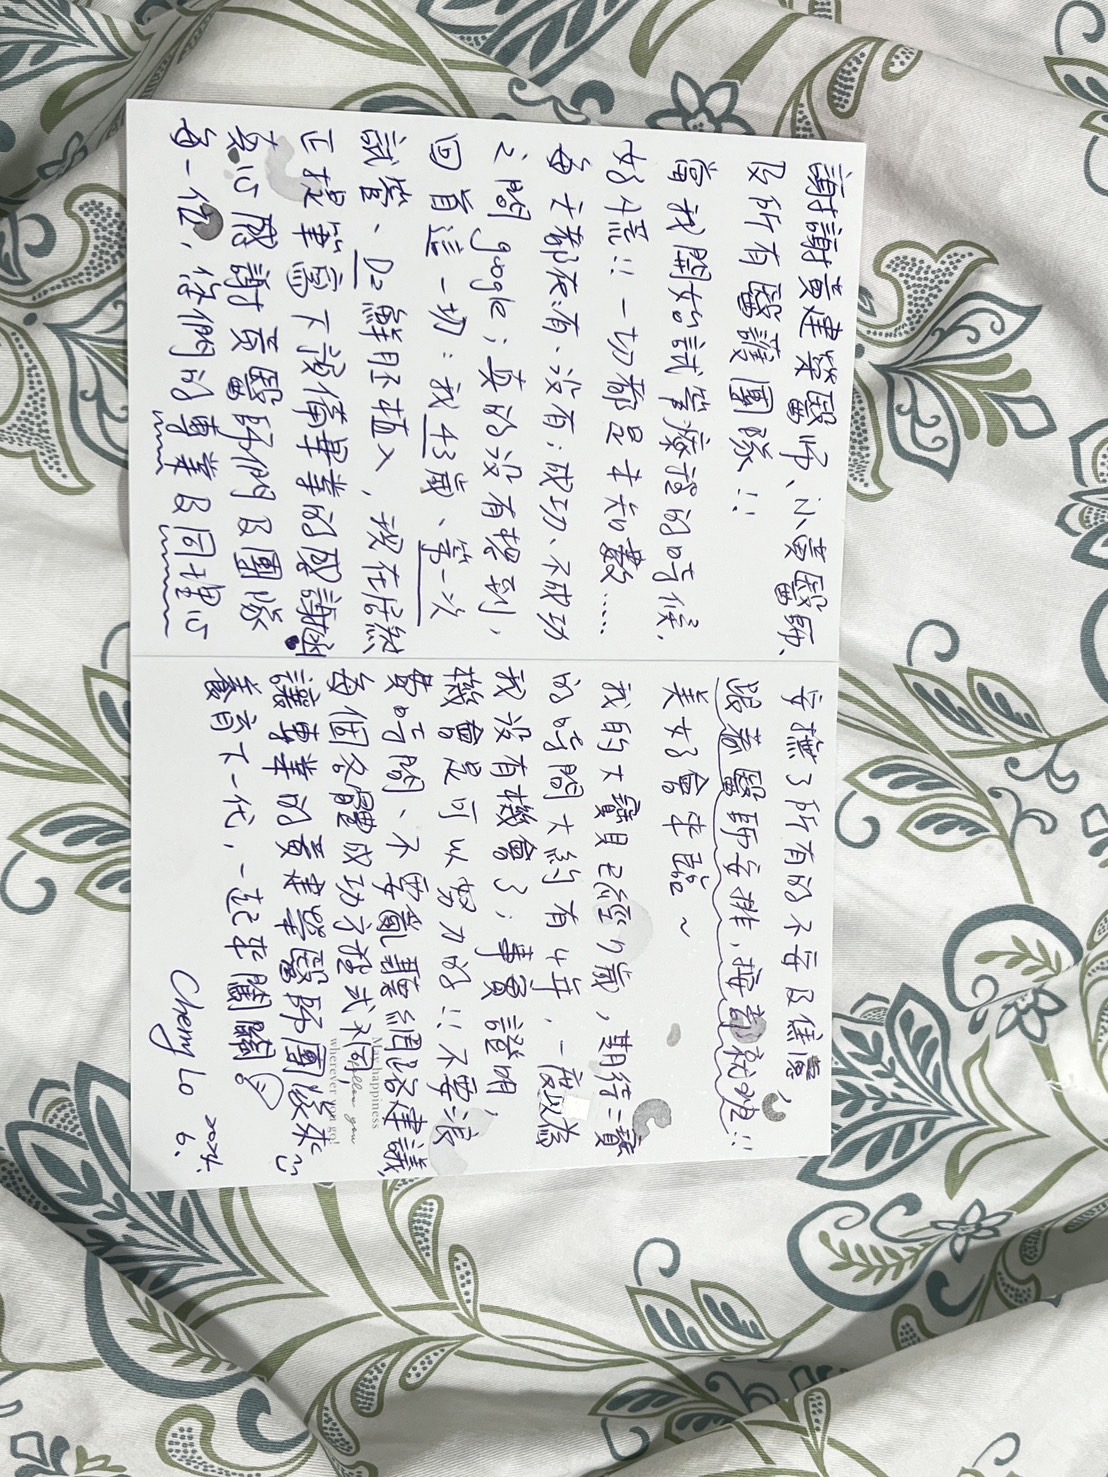 謝謝黃建榮醫師、小黃醫師、
及所有醫護團隊!!
當我開始試管療程的時候,
好慌!! 一切都是未知數……
每天都在有、沒有;成功、不成功
之間google;真的沒有想到,
回首這一切:我43歲、第一次
試管、D2鮮胚植入,現在居然
正提筆寫下預備畢業的感謝函
真心感謝黃醫師們及團隊
每一位,你們的專業及同理心
安撫了所有的不安及焦慮
跟著醫師安排,按部就班!!
美好會來臨~
我的大寶貝已經7歲,期待二寶
的時間大約有4年,一度以為
我沒有機會了;事實證明,
機會是可以努力的!! 不要浪
費時間、不要亂聽網路建議
每個各體成功方程式不同,
讓專業的黃建榮醫師團隊來
養育下一代,一起來關關
May happiness
follow you
wherever you go!
Cherry Lo 2024.
6.